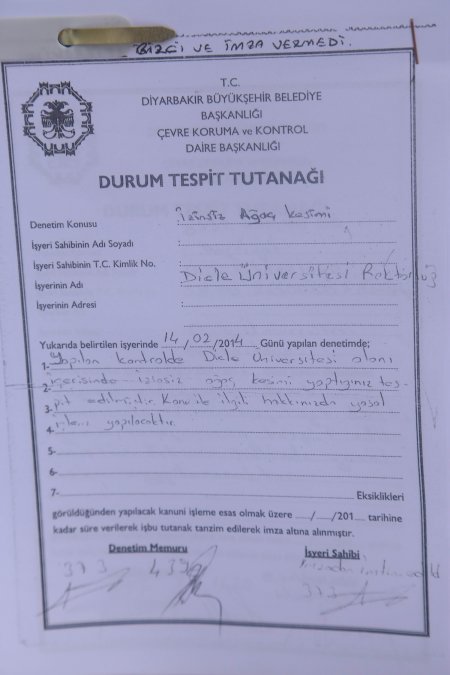 BİLGİ VE İMZA VERMEDİ.
T.C.
DİYARBAKIR BÜYÜKŞEHİR BELEDİYE
BAŞKANLIĞI
ÇEVRE KORUMA ve KONTROL
DAİRE BAŞKANLIĞI
DURUM TESPİT TUTANAĞI
Denetim Konusu : İzinsiz Ağaç Kesimi
İşyeri Sahibinin Adı Soyadı :
İşyeri Sahibinin T.C. Kimlik No. :
İşyerinin Adı : Dicle Üniversitesi Rektörlüğü
İşyerinin Adresi :
Yukarıda belirtilen işyerinde 14/02/2014 Günü yapılan denetimde;
1- Yapılan kontrolde Dicle Üniversitesi alanı
2- içerisinde izinsiz ağaç kesimi yaptığınız tes-
3- pit edilmiştir. Konu ile ilgili hakkınızda yasal
4- işlem yapılacaktır
5-
6-
7- Eksiklikleri
görüldüğünden yapılacak kanuni işleme esas olmak üzere .../.../201... tarihine
kadar süre verilerek işbu tutanak tanzim edilerek imza altına alınmıştır.
Denetim Memuru İşyeri Sahibi
373 439
373